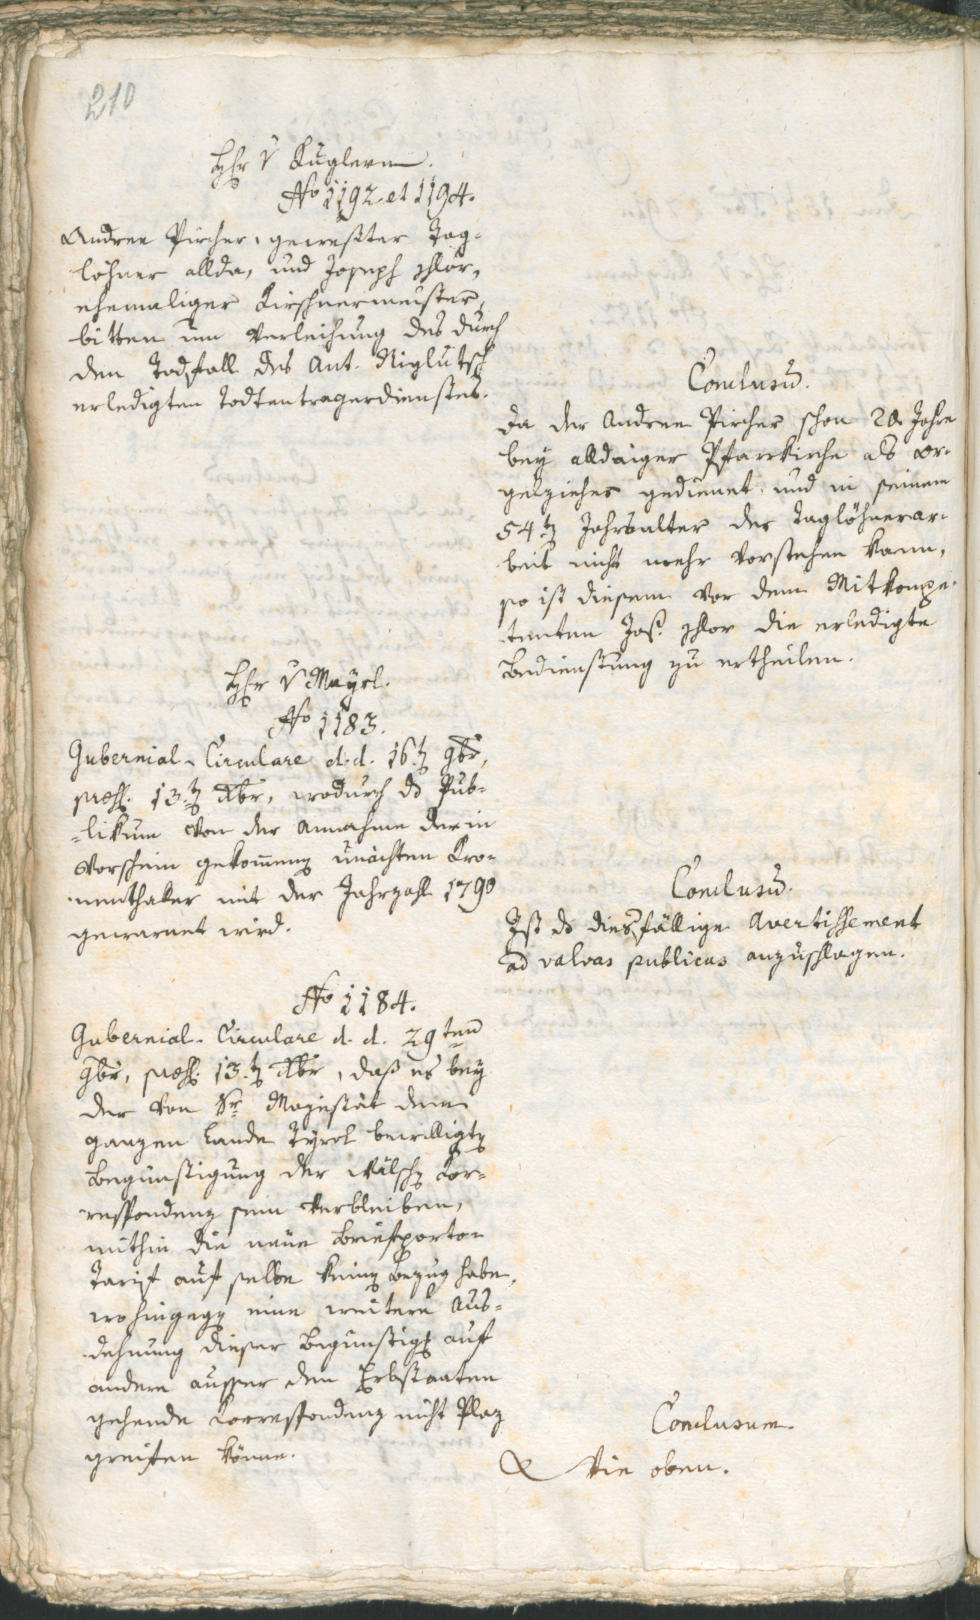 210
Hhr v Kuglerin.
No 1192 et 1194.
Andree Pircher, gewester Tag-
löhner allda, und Joseph Flor,
ehemaliger Kirschnermeister,
bitten um Verleihung des durch
den Todfall des Ant. Niglutsch
erledigten Todtentragerdienstes.
Conclusū.
Da der Andree Pircher schon 20 Jahre
bey alldaiger Pfarrkirche als Or-
gelzieher gedienet, und in seinem
54.ten Jahrsalter der Taglöhnerar-
beit nicht mehr vorstehen kann,
so ist diesem vor dem Mitkompe-
tenten Jos. Flor die erledigte
Bedienstung zu ertheilen.
Hhr v Mayrl.
No 1183.
Gubernial-Circulare d. d. 16.ten 9br,
præs. 13.ten Xbr, wodurch ds Pub-
likum von der Annahme der in
Vorschein gekom̄enen unächten Kro-
nenthaler mit der Jahrzahl 1790
gewarnet wird.
Conclusū.
Ist ds diesfällige Avertissement
ad valvas publicas anzuschlagen.
No 1184.
Gubernial-Circulare d. d. 29ten
9br, præs. 13.ten Xbr, daß es bey
der von Sr Majestät dem
ganzen Lande Tyrol bewilligten
Begünstigung der Wälschen Kor-
respondenz sein Verbleiben,
mithin die neue Briefporto-
Tariff auf selbe keinen Bezug habe,
wohingegen eine weitere Aus-
dehnung dieser Begünstigg auf
andere ausser den Erbstaaten
gehende Correspondenz nicht Plaz
greiffen könne.
Conclusum.
Wie oben.